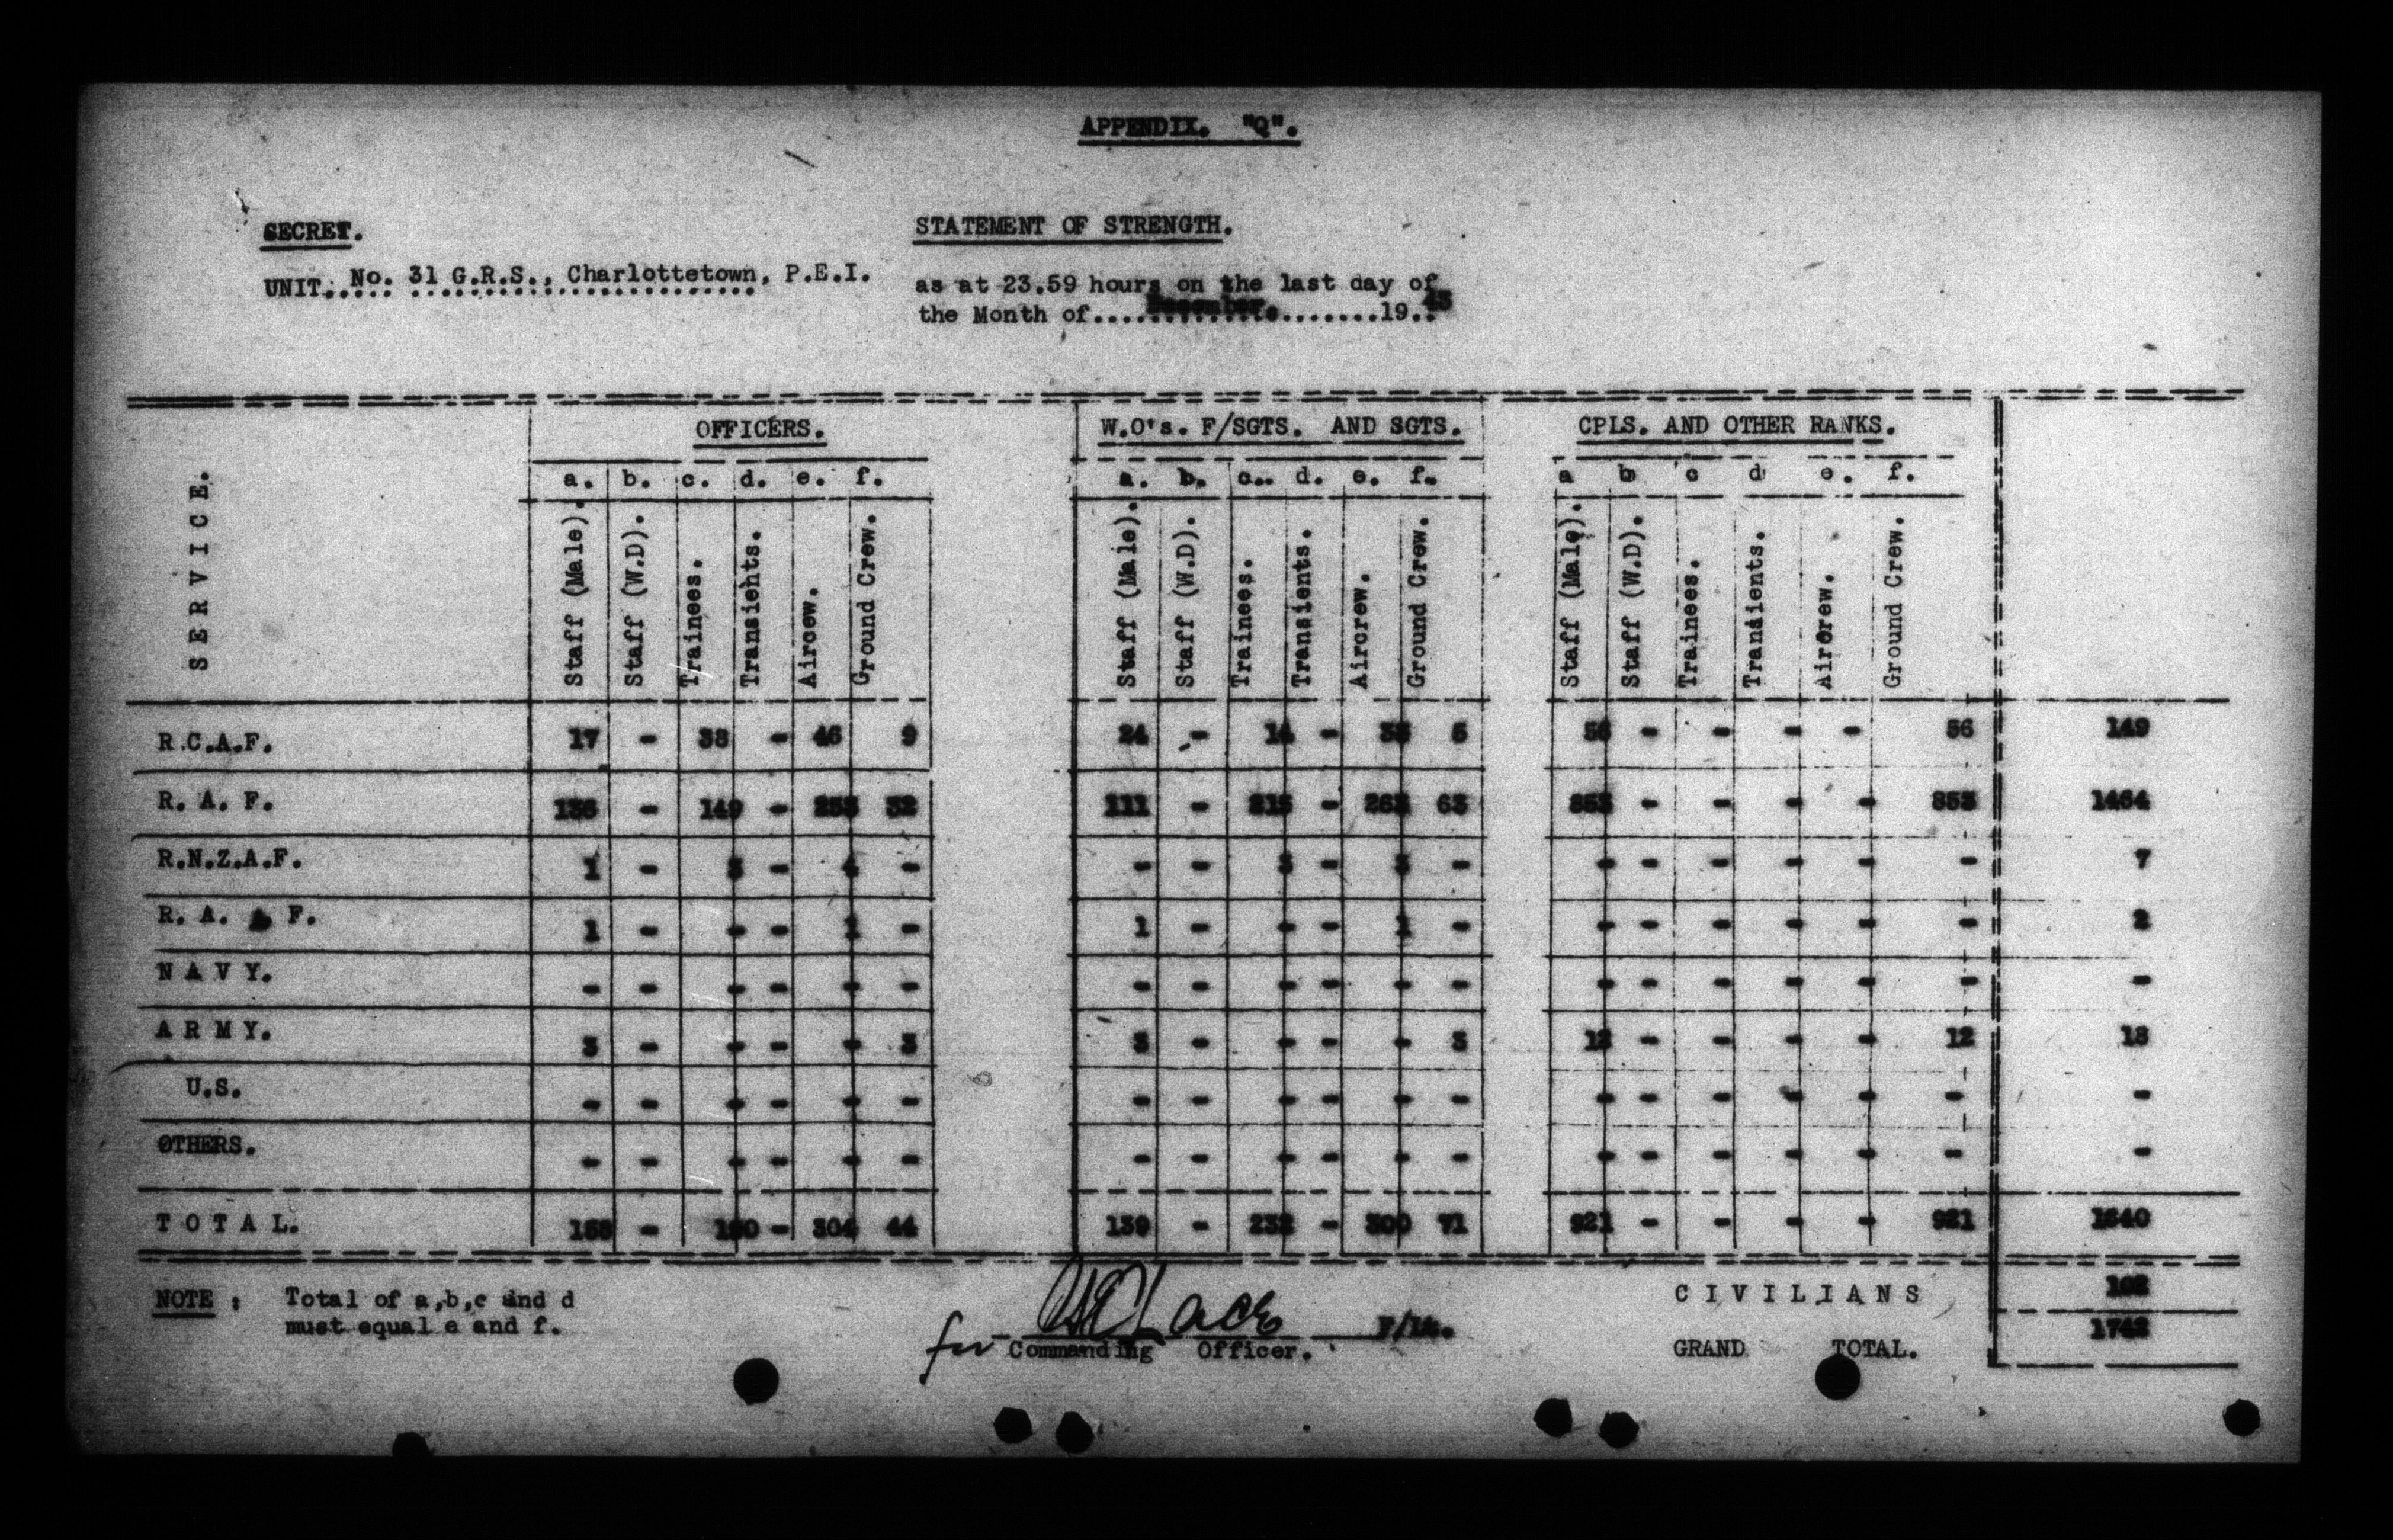 APPENDIX. "Q".
SECRET. STATEMENT OF STRENGTH.
UNIT..No. 31 G.R.S., Charlottetown, P.E.I. as at 23.59 hours on the last day of
the Month of....December........19..43
SERVICE. OFFICERS. W.O's. F/SGTS. AND SGTS. CPLS. AND OTHER RANKS.
a. b. c. d. e. f. a. b. c.. d. e. f. a b c d e. f.
Staff (Male). Staff (W.D). Trainees. Transients. Aircew. Ground Crew. Staff (Male). Staff (W.D). Trainees. Transients. Aircrew. Ground Crew. Staff (Male). Staff (W.D). Trainees. Transients. Aircrew. Ground Crew.
R.C.A.F. 17 - 38 - 46 9 24 - 14 - 33 5 56 - - - - 56 149
R. A. F. 136 - 149 - 253 32 111 - 215 - 263 63 853 - - - - 853 1464
R.N.Z.A.F. 1 - 3 - 4 - - - 3 - 3 - - - - - - - 7
R. A. A F. 1 - - - 1 - 1 - - - 1 - - - - - - - 2
N A V Y. - - - - - - - - - - - - - - - - - - -
A R M Y. 3 - - - - 3 3 - - - - 3 12 - - - - 12 18
U.S. - - - - - - - - - - - - - - - - - - -
OTHERS. - - - - - - - - - - - - - - - - - - -
T O T A L. 158 - 190 - 304 44 139 - 232 - 300 71 921 - - - - 921 1640
NOTE : Total of a,b,c and d
must equal e and f.
for F/Lt.
Commanding Officer.
C I V I L I A N S 102
GRAND TOTAL. 1742